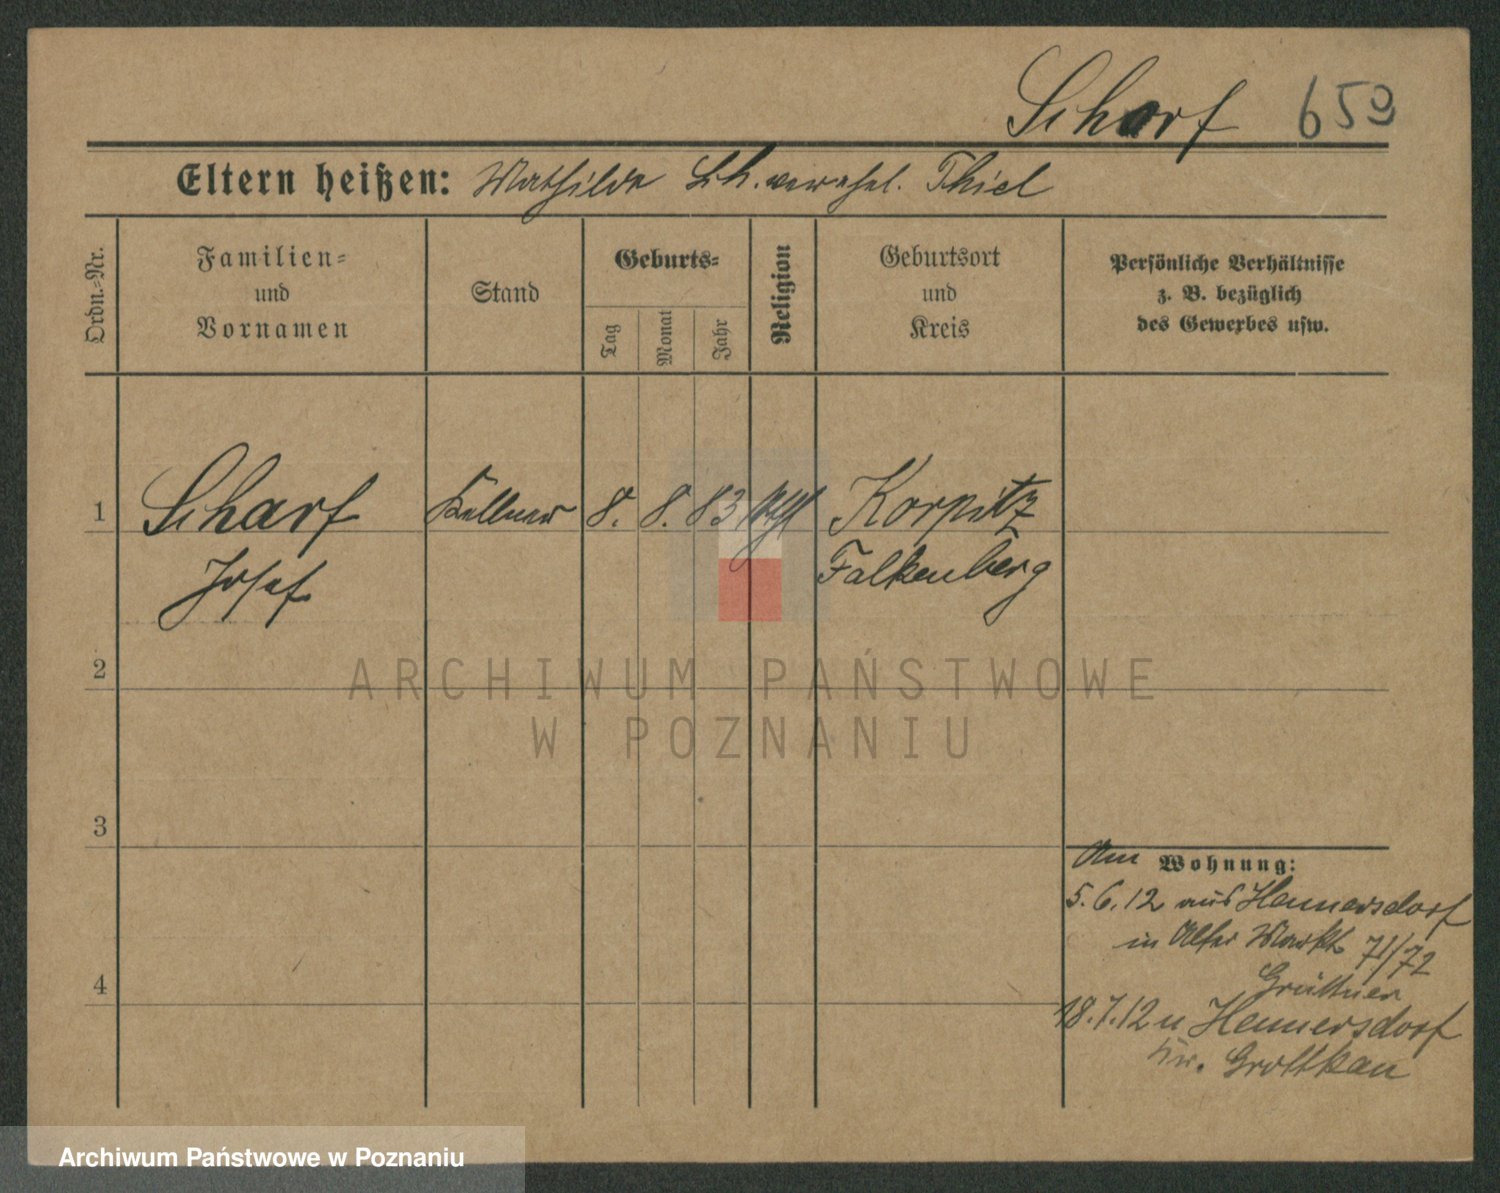 Scharf 659
Eltern heißen: Mathilde Sch. verehel. Thiel
Ordn.-Nr.
Familien-
und
Vornamen
Stand
Geburts-
Tag
Monat
Jahr
Religion
Geburtsort
und
Kreis
Persönliche Verhältnisse
z. B. bezüglich
des Gewerbes usw.
1 Scharf Kellner 8. 8. 83 Korpitz
Josef Falkenberg
2
3
4
Am Wohnung:
5.6.12 aus Hennersdorf
in Alter Markt 71/72
Grüttner
18.7.12 n Hennersdorf
Kr. Grottkau
ARCHIWUM PAŃSTWOWE
W POZNANIU
Archiwum Państwowe w Poznaniu